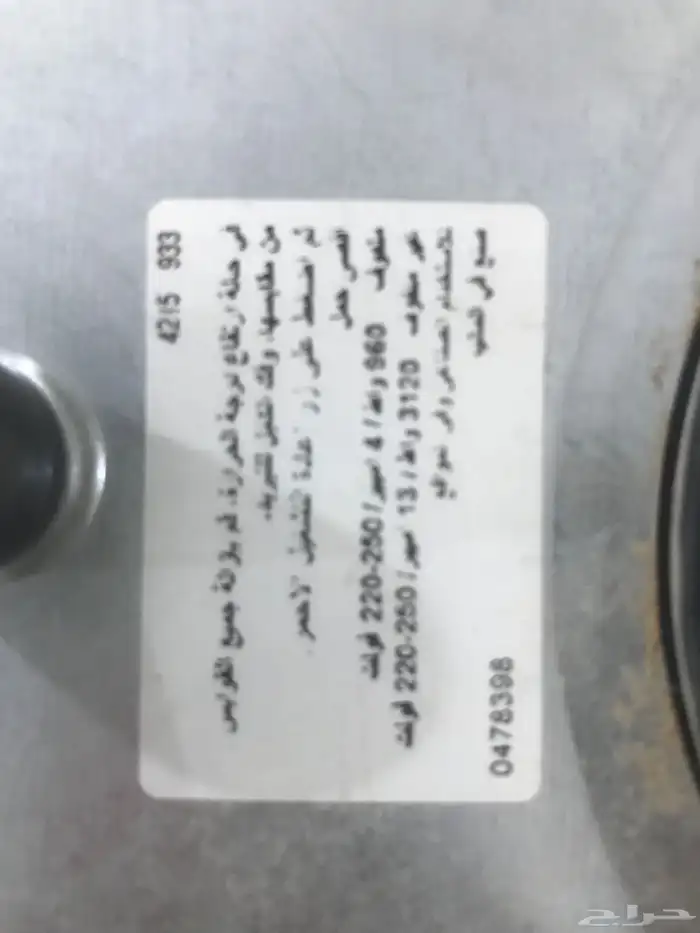 4215 933
في حالة ارتفاع درجة الحرارة، قم بإزالة جميع القوابس
من مقابسها، وفك الكبل للتبريد،
ثم اضغط على زر إعادة التشغيل الأحمر.
اقصى حمل
ملفوف 960 واط / 4 امبير / 220-250 فولت
غير ملفوف 3120 واط / 13 امبير / 220-250 فولت
للاستخدام الصناعي وفي المواقع
صنع في الصين
0478398
حراج